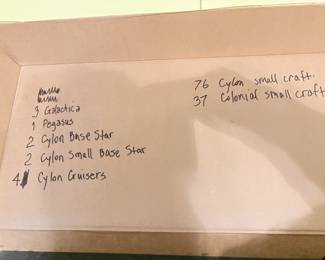 3 Galactica
1 Pegasus
2 Cylon Base Star
2 Cylon Small Base Star
4 Cylon Cruisers
76 Cylon small craft.
37 Colonial small craft